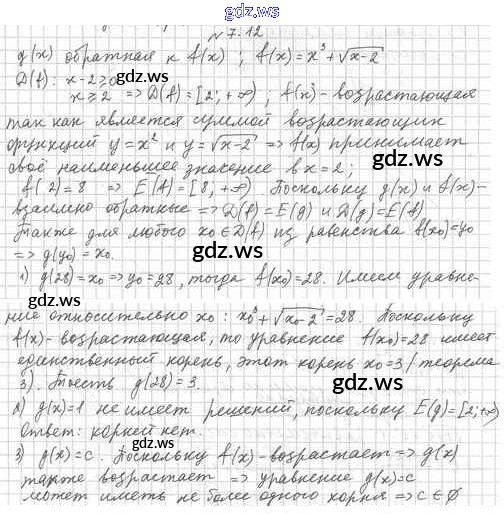 gdz.ru
№ 7.12
g(x) обратная к f(x) ; f(x) = x³ + √x-2
D(f): x-2≥0
x ≥ 2 => D(f) = [2; +∞) ; f(x) - возрастающая
так как является суммой возрастающих
функций y = x² и y = √x-2 => f(x) принимает
своё наименьшее значение в x = 2;
f(2) = 8 => E(f) = [8; +∞). Поскольку g(x) и f(x) -
взаимно обратные => D(f) = E(g) и D(g) = E(f)
Также для любого x₀ ∈ D(f) из равенства f(x₀) = y₀
=> g(y₀) = x₀.
1) g(28) = x₀ => y₀ = 28, тогда f(x₀) = 28. Имеем уравне-
ние относительно x₀: x₀³ + √x₀-2 = 28. Поскольку
f(x) - возрастающая, то уравнение f(x₀) = 28 имеет
единственный корень, этот корень x₀ = 3 / теорема
3). То есть g(28) = 3.
2) g(x) = 1 не имеет решений, поскольку E(g) = [2; +∞)
Ответ: корней нет.
3) g(x) = c. Поскольку f(x) - возрастает => g(x)
также возрастает => уравнение g(x) = c
может иметь не более одного корня => c ∈ ∅
www.gdz.ru
www.gdz.ru
www.gdz.ru
www.gdz.ru
www.gdz.ru
www.gdz.ru
www.gdz.ru